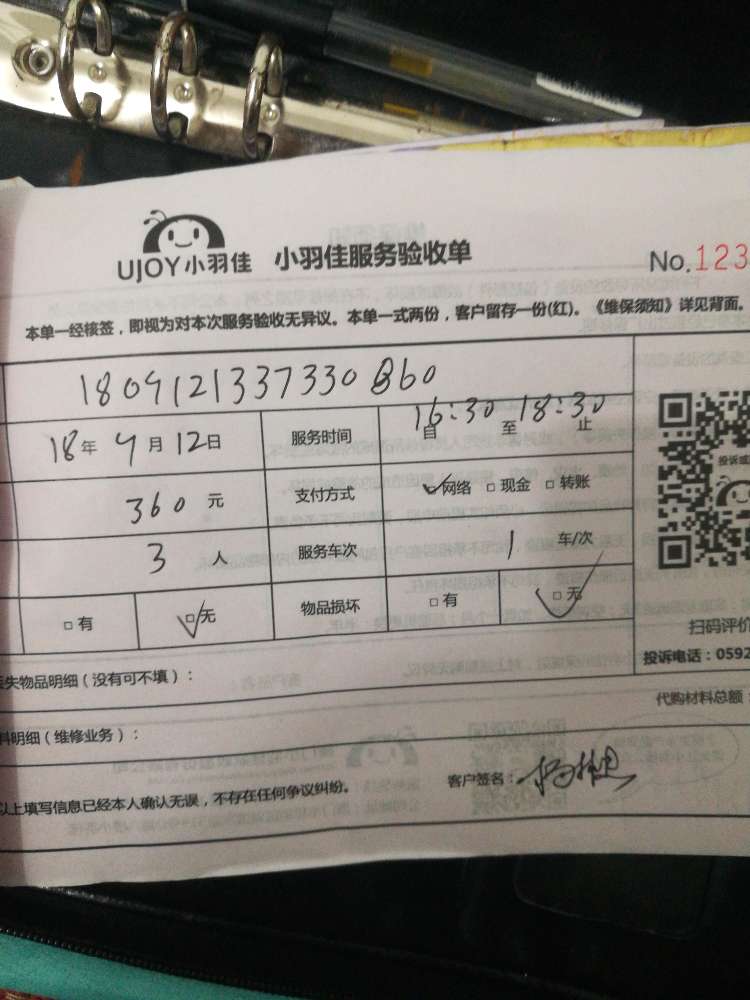 UJOY小羽佳 小羽佳服务验收单 No.123
本单一经核签，即视为对本次服务验收无异议。本单一式两份，客户留存一份(红)。《维保须知》详见背面。
1809121337330860
18年9月12日 服务时间 自16:30至18:30止
360元 支付方式 ☑网络 □现金 □转账
3人 服务车次 1车/次
□有 ☑无 物品损坏 □有 ☑无
投诉或
扫码评价
投诉电话：0592
失物品明细（没有可不填）：
代购材料总额：
料明细（维修业务）：
以上填写信息已经本人确认无误，不存在任何争议纠纷。 客户签名：